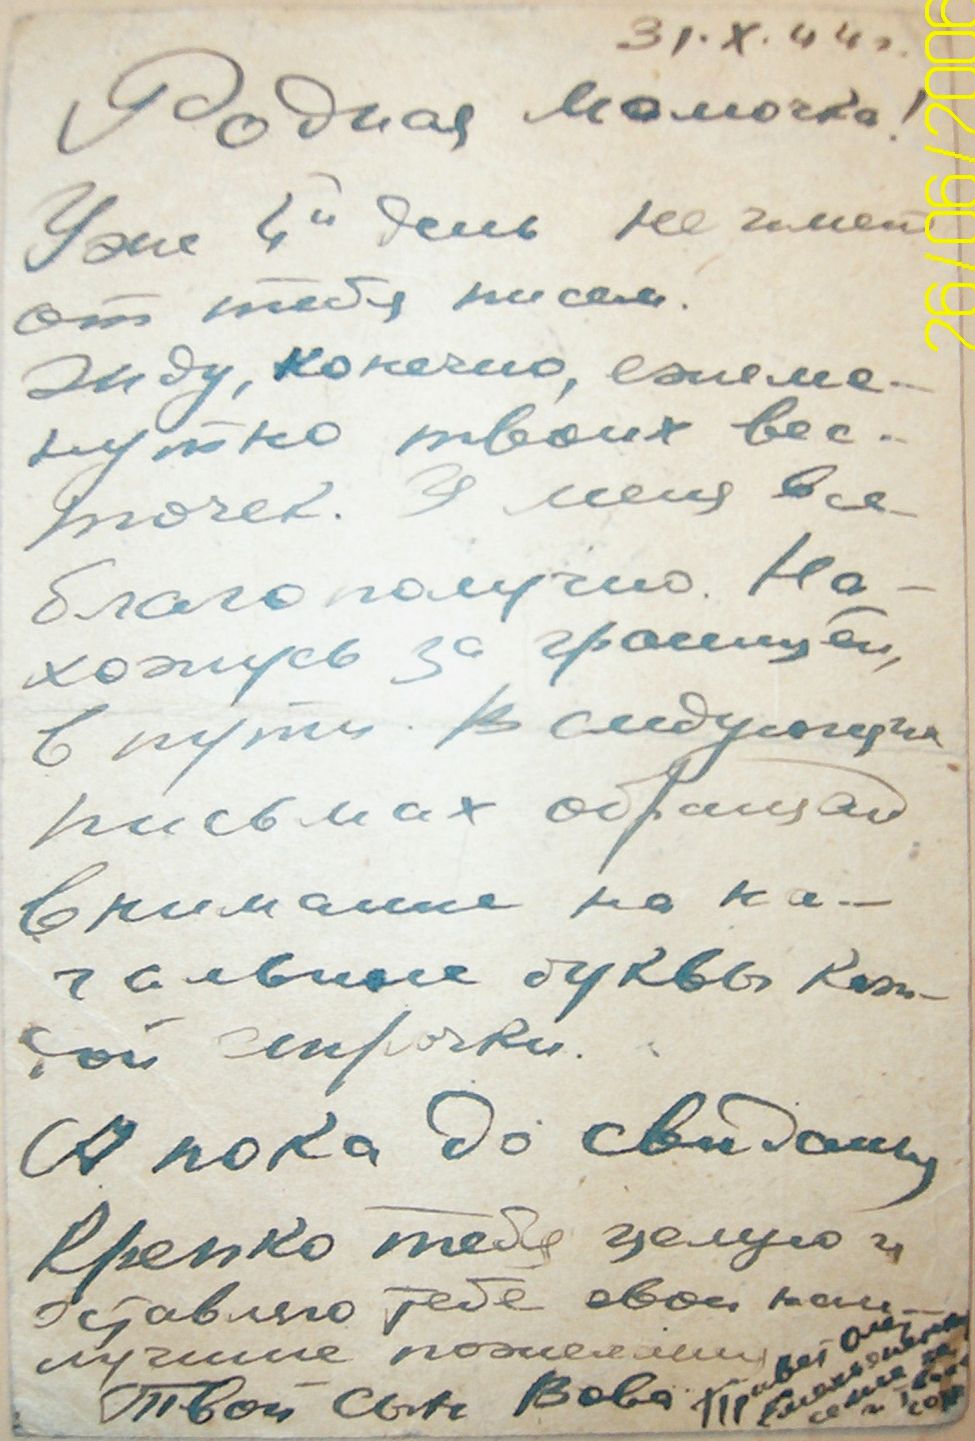 31.X.44г.
Родная мамочка!
Уже 4й день не имею
от тебя писем.
Жду, конечно, ежеми-
нутно твоих вес-
точек. У меня все
благополучно. На-
хожусь за границей,
в пути. В следующих
письмах обращай
внимание на на-
чальные буквы каж-
дой строчки.
А пока до свидания
Крепко тебя целую и
оставляю тебе свои наи-
лучшие пожелания
Твой сын Вова.
Привет
26/06/2006